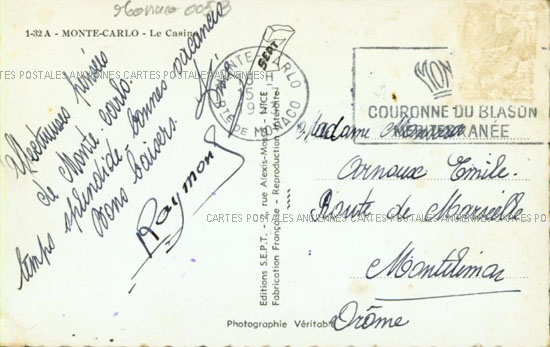 Monaco 005B
1-32 A - MONTE-CARLO - Le Casino
CARTES POSTALES ANCIENNES CARTES POSTALES ANCIENNES CARTES POSTALES ANCIENNES CARTES POSTALES ANCIENNES
Affectueuses pensées
de Monte-Carlo.
temps splendide - bonnes vacances
Bons baisers.
Raymond
MONTE-CARLO
PTE DE MONACO
COURONNE DU BLASON
Editions S.E.P.T. - rue Alexis-Mossa - NICE
Fabrication Française - Reproduction Interdite
SEPT
Madame Monsieur
Arnoux Emile
Route de Marseille
CARTES POSTALES ANCIENNES CARTES POSTALES ANCIENNES
Montélimar
Drôme
Photographie Véritable